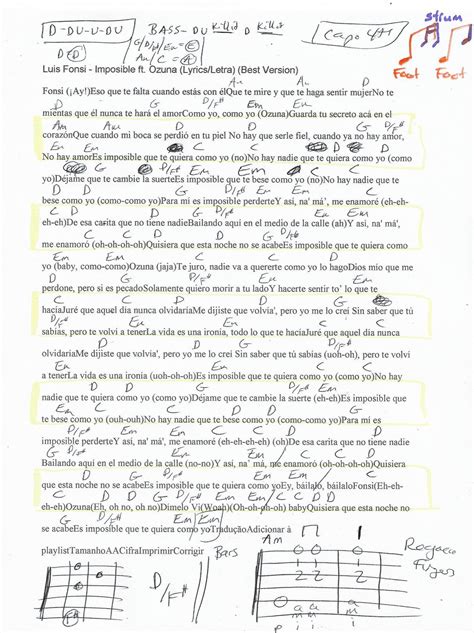 D-DU-U-DU BASS-DU D Capo 4th
Luis Fonsi - Imposible ft. Ozuna (Lyrics/Letra) (Best Version)
Am Am D
Fonsi (¡Ay!)Eso que te falta cuando estás con élQue te mire y que te haga sentir mujerNo te
D/F# Em Em D
mientas que él nunca te hará el amorComo yo, como yo (Ozuna)Guarda tu secreto acá en el
Am Am D D/F#
corazónQue cuando mi boca se perdió en tu piel No hay que serle fiel, cuando ya no hay amor,
Em Em C C
No hay amorEs imposible que te quiera como yo (no)No hay nadie que te quiera como yo (como
G D/F# Em Em C C
yo)Déjame que te cambie la suerteEs imposible que te bese como yo (no)No hay nadie que te
D D G D/F#
bese como yo (como-como yo)Para mi es imposible perderteY así, na' má', me enamoré (eh-eh-
Em Em C C D
eh-eh)De esa carita que no tiene nadieBailando aquí en el medio de la calle (ah)Y así, na' má',
D G D/F#
me enamoró (oh-oh-oh-oh)Quisiera que esta noche no se acabeEs imposible que te quiera como
Em Em C C D
yo (baby, como-como)Ozuna (jaja)Te juro, nadie va a quererte como yo lo hagoDios mio que me
D G D/F# Em Em
perdone, pero si es pecadoSolamente quiero morir a tu ladoY hacerte sentir to' lo que te
C C D D G
hacíaJuré que aquel día nunca olvidaríaMe dijiste que volvía', pero yo me lo creí Sin saber que tú
D/F# Em Em C C
sabías, pero te volví a tenerLa vida es una ironía, todo lo que te hacíaJuré que aquel día nunca
D D G D/F#
olvidaríaMe dijiste que volvía', pero yo me lo creí Sin saber que tú sabías (uoh-oh), pero te volví
Em Em C C
a tenerLa vida es una ironía (uoh-oh)Es imposible que te quiera como yo (como yo)No hay
D D G D/F# Em
nadie que te quiera como yo (como yo)Déjame que te cambie la suerte (eh)Es imposible que
Em C C D D G
te bese como yo (ouh-ouh)No hay nadie que te bese como yo (como-como yo)Para mi es
D/F# Em Em C C
imposible perderteY así, na' má', me enamoré (eh-eh-eh-eh) (oh)De esa carita que no tiene nadie
D D G D/F#
Bailando aquí en el medio de la calle (no-no)Y así, na' má, me enamoró (oh-oh-oh-oh)Quisiera
Em Em C C D
que esta noche no se acabeEs imposible que te quiera como yoEy, báilalo, báilaloFonsi(Eh-eh-
D G D/F# Em Em C C D D
eh-eh)Ozuna(Eh, oh no, oh no)Dímelo Vi(Woah)(Oh-oh-oh-oh) babyQuisiera que esta noche no
G D/F# Em Em
se acabeEs imposible que te quiera como yoTraduçãoAdicionar à
playlistTamanhoAACifraImprimirCorrigir Bars
Am
D/F#